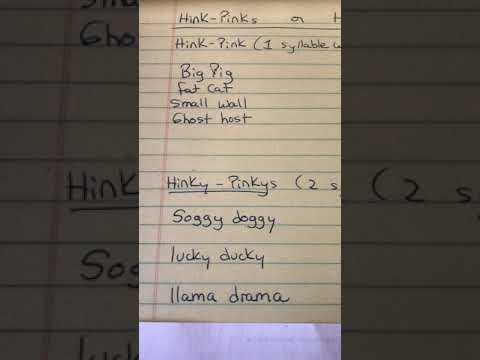 Hink-Pinks or H
Hink-Pink (1 syllable w
Big Pig
fat cat
Small wall
Ghost host
Hinky-Pinkys (2 s
Soggy doggy
lucky ducky
llama drama